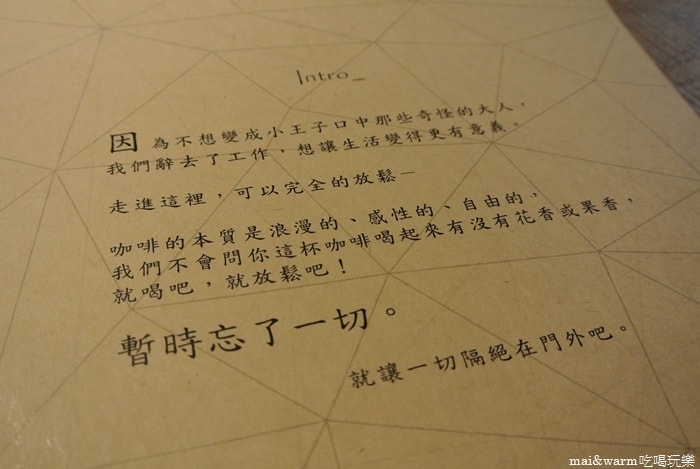 Intro_
因為不想變成小王子口中那些奇怪的大人，
我們辭去了工作，想讓生活變得更有意義。
走進這裡，可以完全的放鬆－
咖啡的本質是浪漫的、感性的、自由的，
我們不會問你這杯咖啡喝起來有沒有花香或果香，
就喝吧，就放鬆吧！
暫時忘了一切。
就讓一切隔絕在門外吧。
mai&warm吃喝玩樂